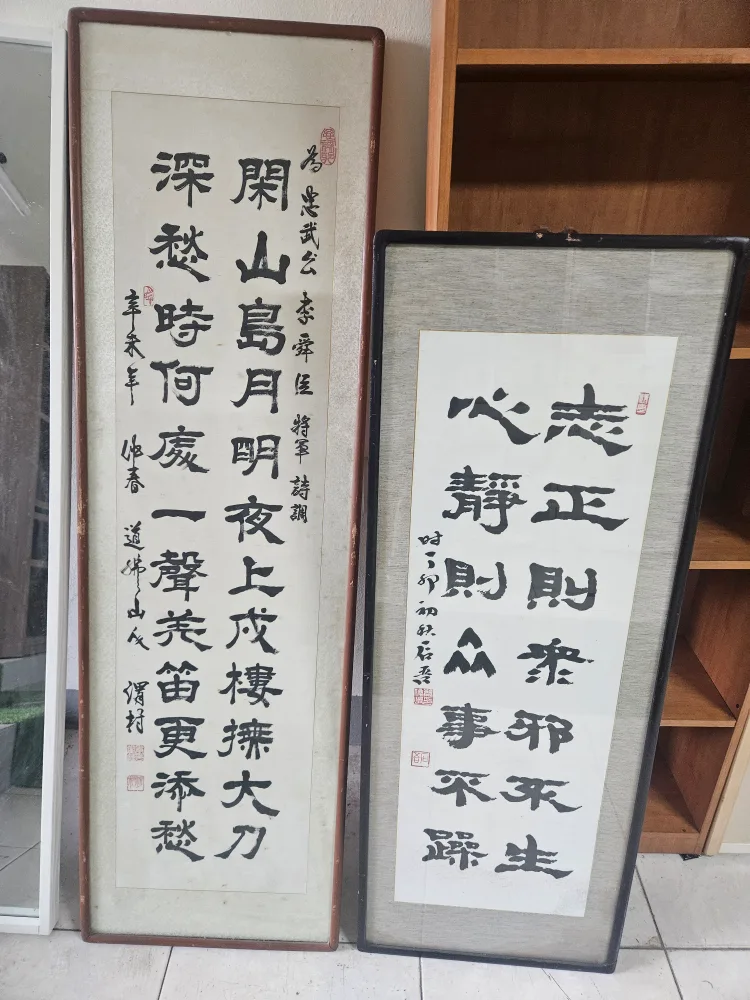 為忠武公 李舜臣 將軍 詩調
閑山島月明夜上戍樓撫大刀
深愁時何處一聲羌笛更添愁
辛未年 仲春 道佛山人 渭村
志正則衆邪不生
心靜則众事不躁
时丁卯初秋石